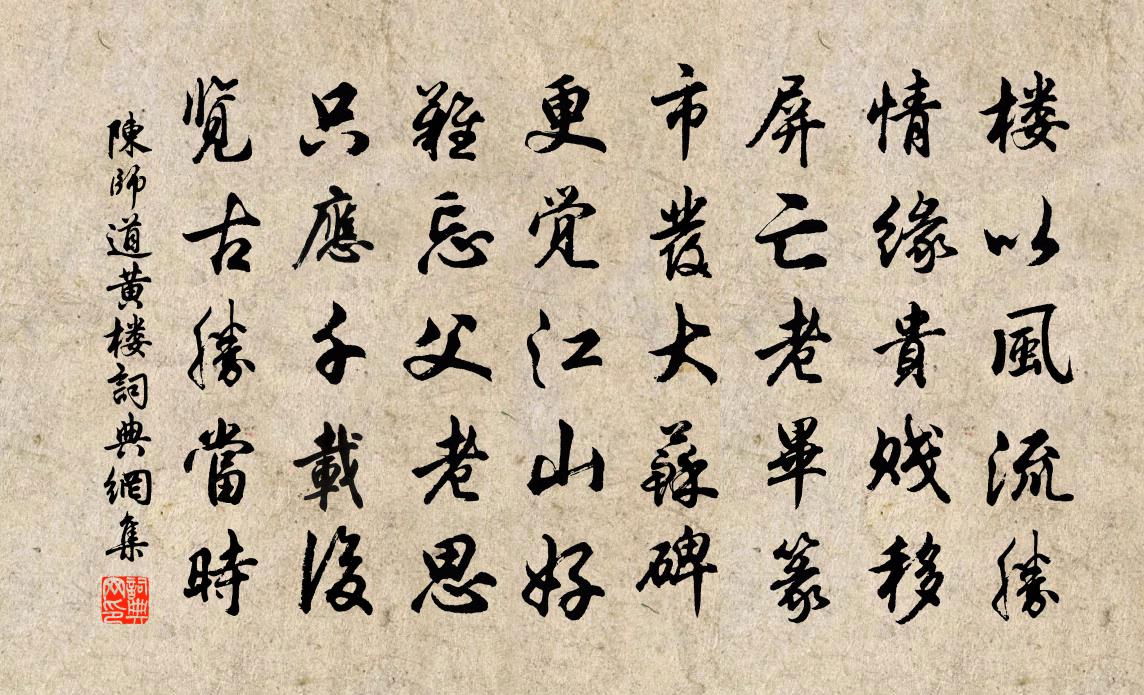 楼以風流勝
情缘貴贱移
屏亡老畢篆
市發大蘇碑
更覚江山好
難忘父老思
只應千載後
览古勝當時
陳師道黄楼詞典網集
詞典网印